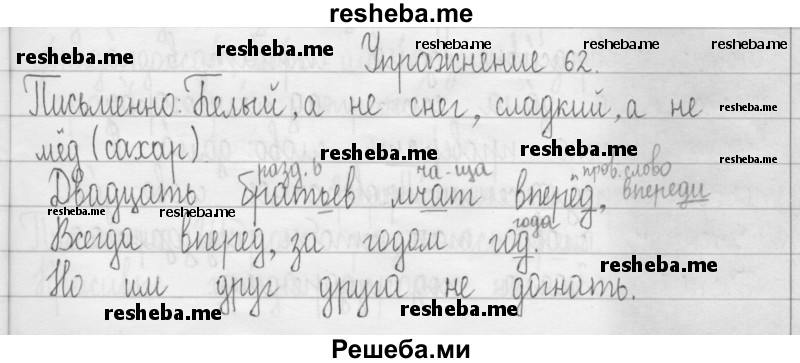 resheba.me
resheba.me resheba.me resheba.me resheba.me resheba.me
Упражнение 62.
Письменно: Белый, а не снег, сладкий, а не
resheba.me
мёд (сахар).
resheba.me resheba.me resheba.me
разд. ь ча-ща пров. слово
Двадцать братьев мчат вперёд, впереди
resheba.me resheba.me
года
Всегда вперёд, за годом год.
resheba.me
Но им друг друга не догнать.
resheba.me resheba.me resheba.me
Решеба.ми